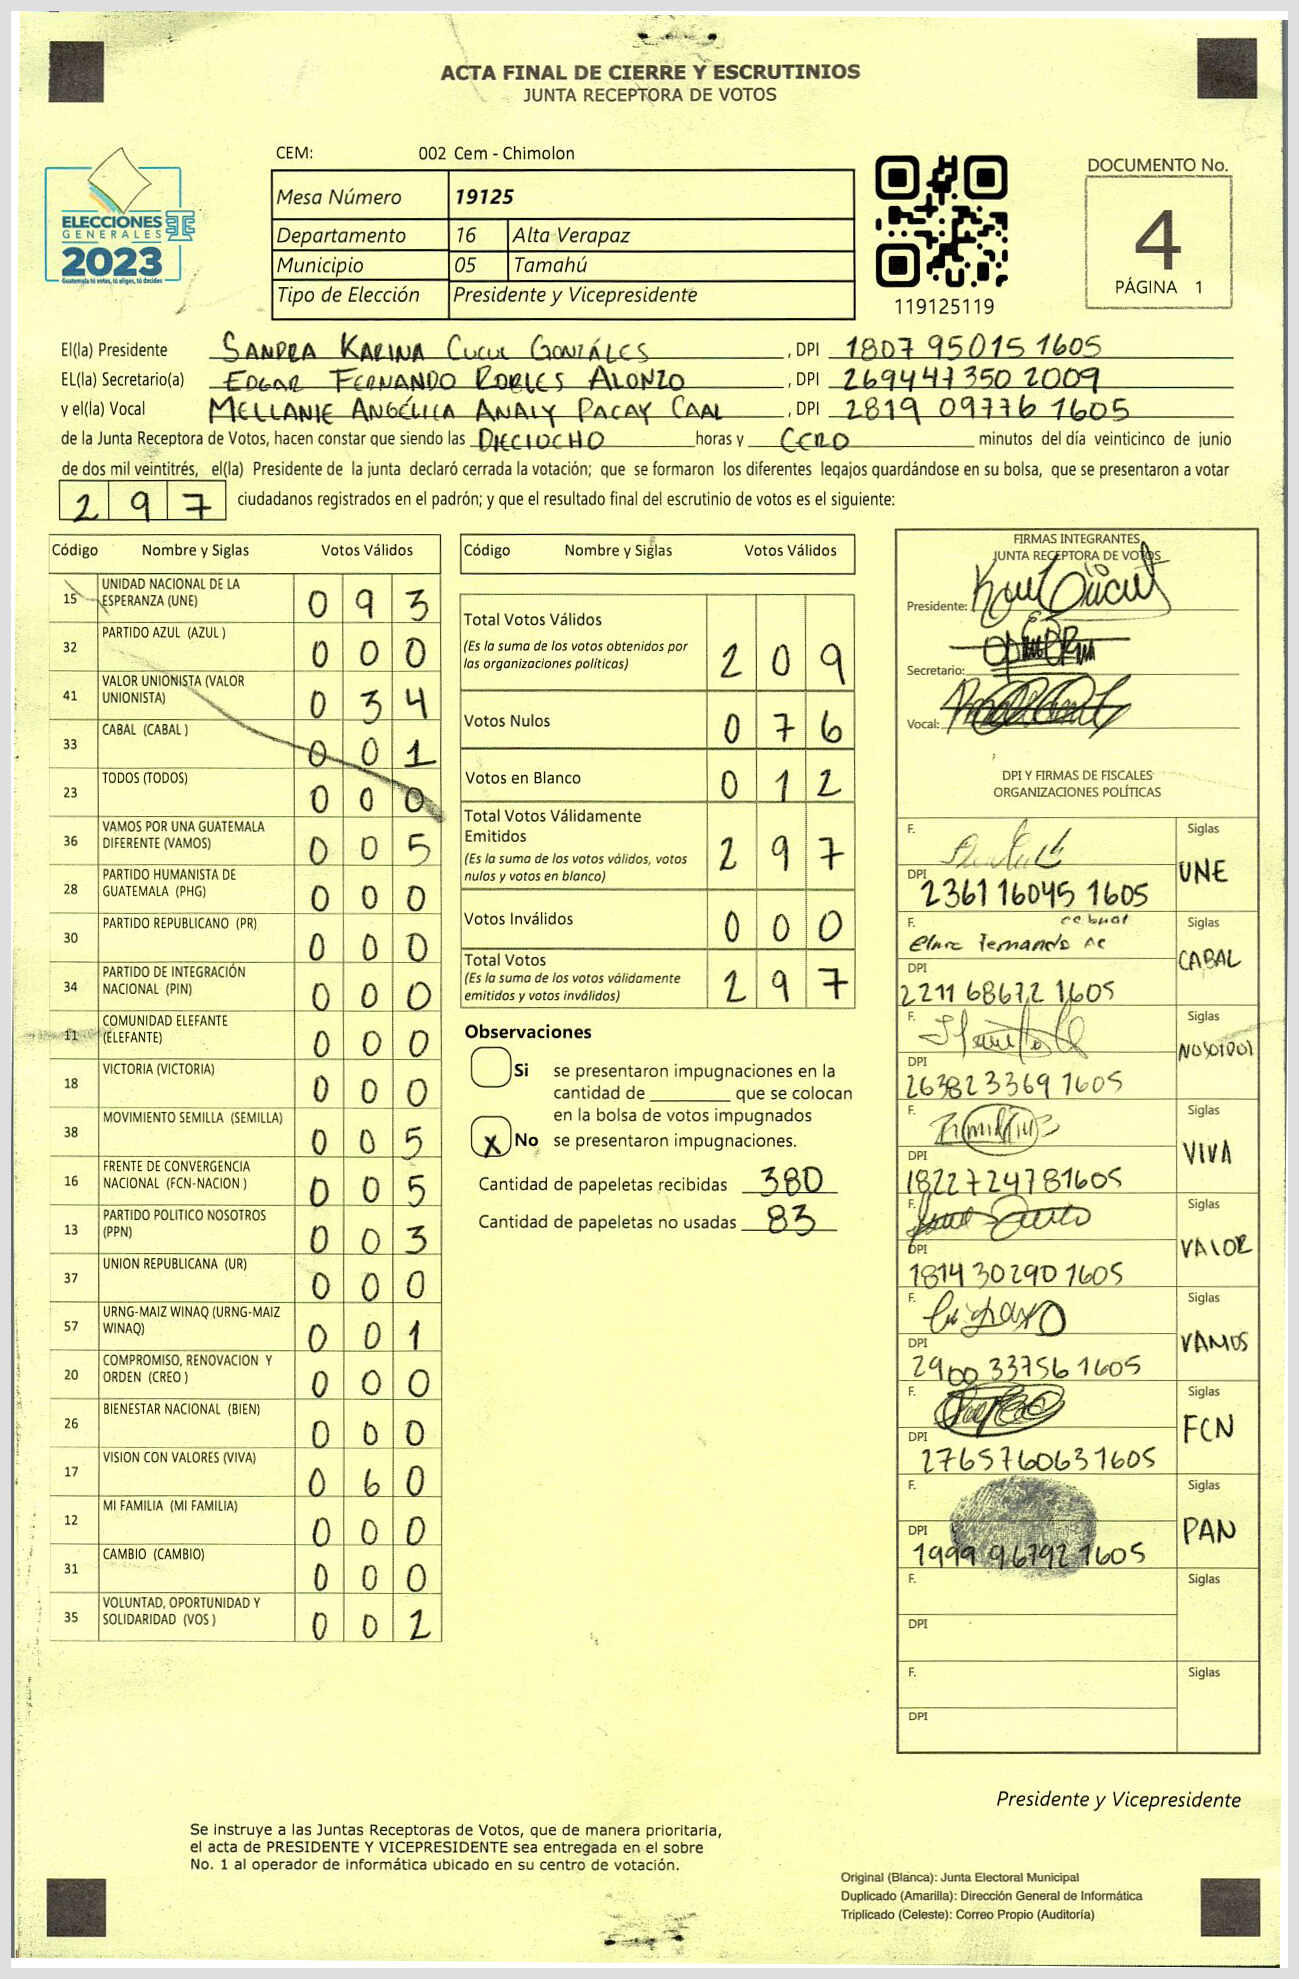 ACTA FINAL DE CIERRE Y ESCRUTINIOS
JUNTA RECEPTORA DE VOTOS
ELECCIONES
GENERALES
2023
Guatemala tú votas, tú eliges, tú decides
CEM: 002 Cem - Chimolon
Mesa Número 19125
Departamento 16 Alta Verapaz
Municipio 05 Tamahú
Tipo de Elección Presidente y Vicepresidente
119125119
DOCUMENTO No.
4
PÁGINA 1
El(la) Presidente SANDRA KARINA CUCUL GONZÁLES, DPI 1807 95015 1605
EL(la) Secretario(a) EDGAR FERNANDO ROBLES ALONZO, DPI 2694 47350 2009
y el(la) Vocal MELLANIE ANGÉLICA ANALY PACAY CAAL, DPI 2819 09776 1605
de la Junta Receptora de Votos, hacen constar que siendo las DIECIOCHO horas y CERO minutos del día veinticinco de junio
de dos mil veintitrés, el(la) Presidente de la junta declaró cerrada la votación; que se formaron los diferentes legajos quardándose en su bolsa, que se presentaron a votar
297 ciudadanos registrados en el padrón; y que el resultado final del escrutinio de votos es el siguiente:
Código Nombre y Siglas Votos Válidos
15 UNIDAD NACIONAL DE LA
ESPERANZA (UNE) 0 9 3
32 PARTIDO AZUL (AZUL ) 0 0 0
41 VALOR UNIONISTA (VALOR
UNIONISTA) 0 3 4
33 CABAL (CABAL ) 0 0 1
23 TODOS (TODOS) 0 0 0
36 VAMOS POR UNA GUATEMALA
DIFERENTE (VAMOS) 0 0 5
28 PARTIDO HUMANISTA DE
GUATEMALA (PHG) 0 0 0
30 PARTIDO REPUBLICANO (PR) 0 0 0
34 PARTIDO DE INTEGRACIÓN
NACIONAL (PIN) 0 0 0
11 COMUNIDAD ELEFANTE
(ELEFANTE) 0 0 0
18 VICTORIA (VICTORIA) 0 0 0
38 MOVIMIENTO SEMILLA (SEMILLA) 0 0 5
16 FRENTE DE CONVERGENCIA
NACIONAL (FCN-NACION ) 0 0 5
13 PARTIDO POLITICO NOSOTROS
(PPN) 0 0 3
37 UNION REPUBLICANA (UR) 0 0 0
57 URNG-MAIZ WINAQ (URNG-MAIZ
WINAQ) 0 0 1
20 COMPROMISO, RENOVACION Y
ORDEN (CREO ) 0 0 0
26 BIENESTAR NACIONAL (BIEN) 0 0 0
17 VISION CON VALORES (VIVA) 0 6 0
12 MI FAMILIA (MI FAMILIA) 0 0 0
31 CAMBIO (CAMBIO) 0 0 0
35 VOLUNTAD, OPORTUNIDAD Y
SOLIDARIDAD (VOS ) 0 0 2
Código Nombre y Siglas Votos Válidos
Total Votos Válidos
(Es la suma de los votos obtenidos por
las organizaciones políticas) 2 0 9
Votos Nulos 0 7 6
Votos en Blanco 0 1 2
Total Votos Válidamente
Emitidos
(Es la suma de los votos válidos, votos
nulos y votos en blanco) 2 9 7
Votos Inválidos 0 0 0
Total Votos
(Es la suma de los votos válidamente
emitidos y votos inválidos) 2 9 7
Observaciones
Si se presentaron impugnaciones en la
cantidad de ________ que se colocan
en la bolsa de votos impugnados
X No se presentaron impugnaciones.
Cantidad de papeletas recibidas 380
Cantidad de papeletas no usadas 83
FIRMAS INTEGRANTES
JUNTA RECEPTORA DE VOTOS
Presidente:
Secretario:
Vocal:
DPI Y FIRMAS DE FISCALES
ORGANIZACIONES POLÍTICAS
F. Siglas
DPI 2361 16045 1605 UNE
F. Siglas
DPI 2211 68672 1605 CABAL
F. Siglas
DPI 2638 23369 1605 NOSOTROS
F. Siglas
DPI 1822 72478 1605 VIVA
F. Siglas
DPI 1814 30290 1605 VALOR
F. Siglas
DPI 2900 33756 1605 VAMOS
F. Siglas
DPI 2765 76063 1605 FCN
F. Siglas
DPI 1999 96792 1605 PAN
F. Siglas
DPI
F. Siglas
DPI
Presidente y Vicepresidente
Se instruye a las Juntas Receptoras de Votos, que de manera prioritaria,
el acta de PRESIDENTE Y VICEPRESIDENTE sea entregada en el sobre
No. 1 al operador de informática ubicado en su centro de votación.
Original (Blanca): Junta Electoral Municipal
Duplicado (Amarilla): Dirección General de Informática
Triplicado (Celeste): Correo Propio (Auditoría)